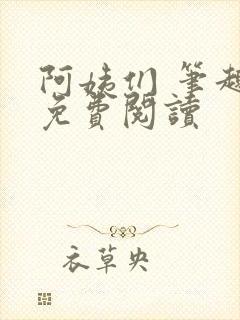 阿姨们 筆趣
免費閱讀
衣草央